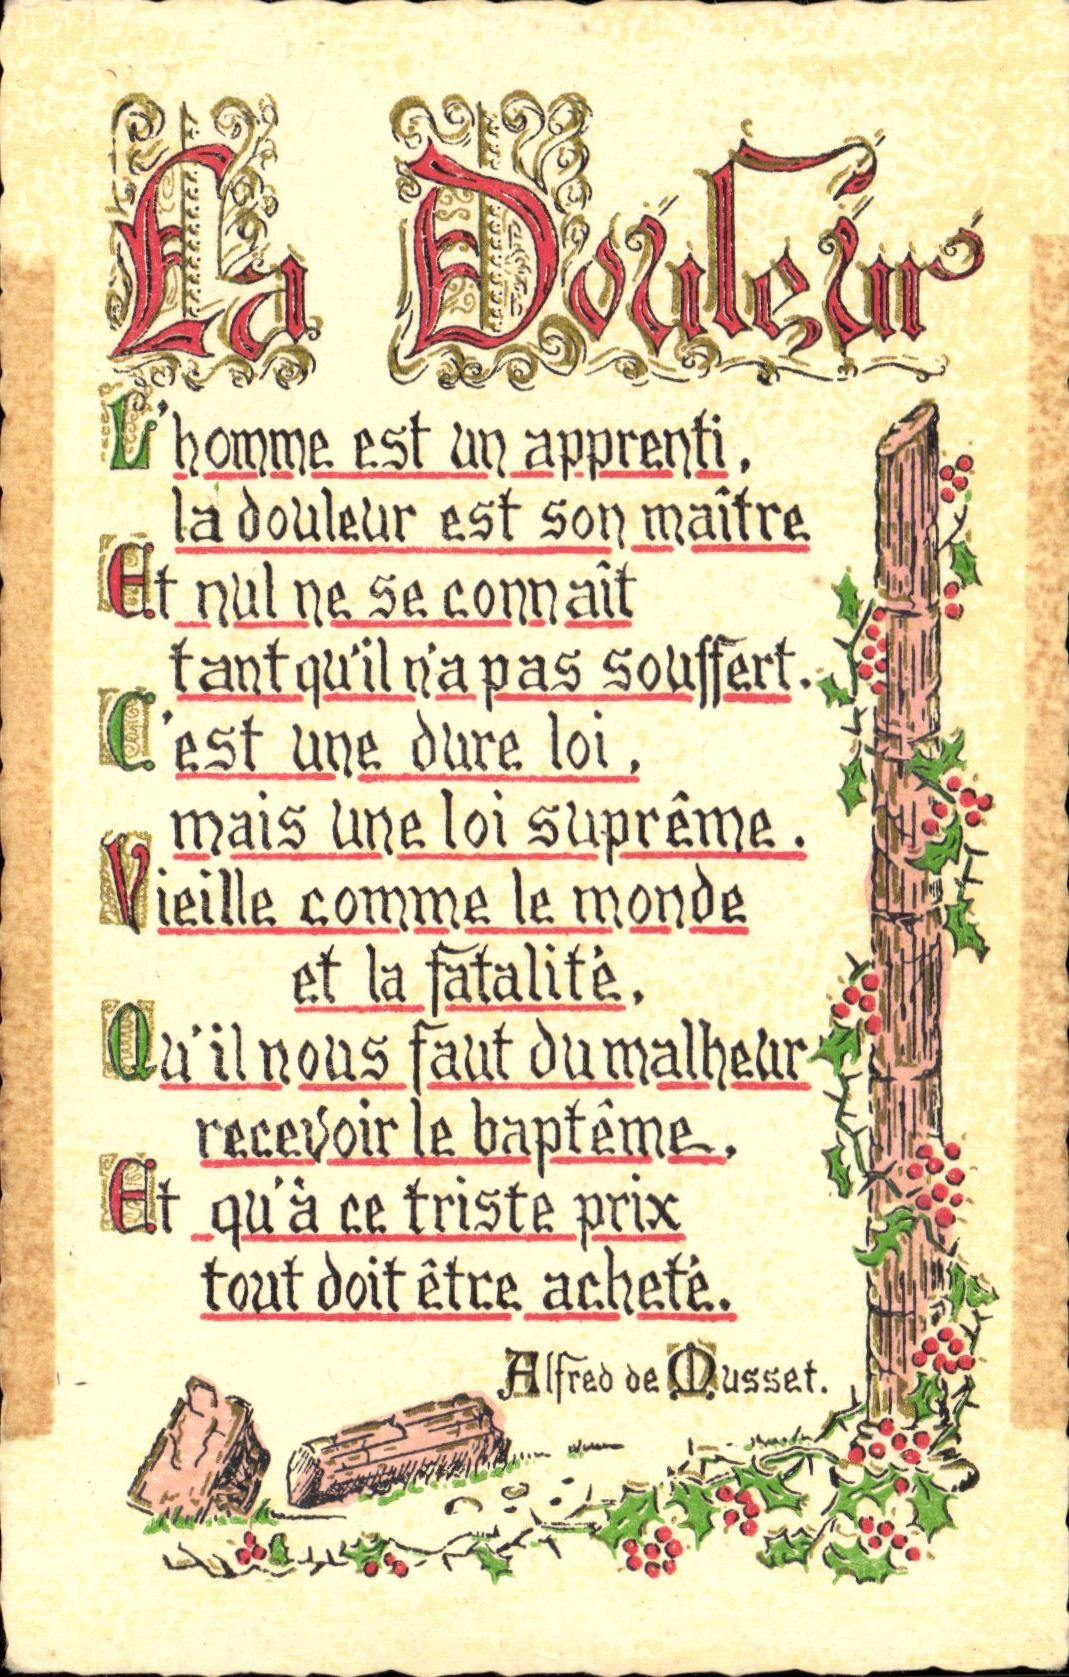 La Douleur
L'homme est un apprenti,
la douleur est son maître
Et nul ne se connaît
tant qu'il n'a pas souffert.
C'est une dure loi,
mais une loi suprême.
Vieille comme le monde
et la fatalité,
Qu'il nous faut du malheur
recevoir le baptême,
Et qu'à ce triste prix
tout doit être acheté.
Alfred de Musset.